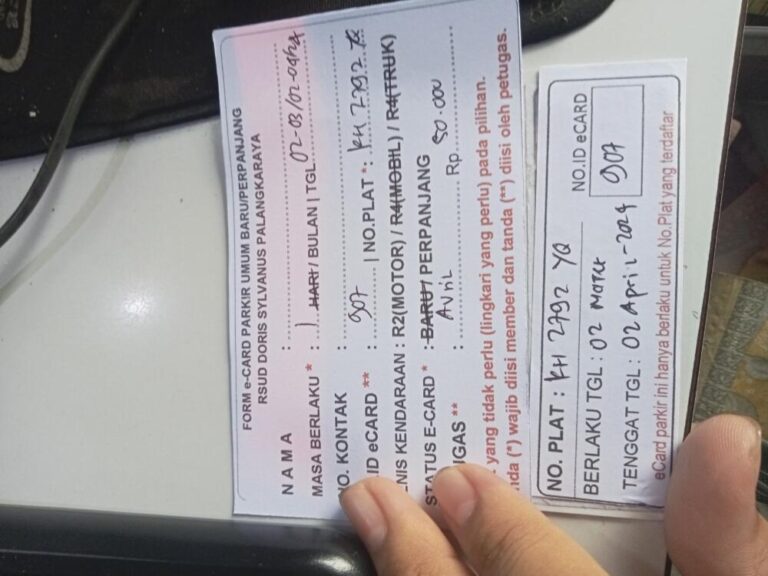 FORM e-CARD PARKIR UMUM BARU/PERPANJANG
RSUD DORIS SYLVANUS PALANGKARAYA
N A M A :
MASA BERLAKU * : 1 HARI / BULAN | TGL 02-03/02-04/24
NO. KONTAK :
ID eCARD ** : 907 | NO.PLAT * : KH 2792 YQ
ENIS KENDARAAN : R2(MOTOR) / R4(MOBIL) / R4(TRUK)
STATUS E-CARD * : BARU / PERPANJANG
UGAS ** : Rp 50.000
yang tidak perlu (lingkari yang perlu) pada pilihan.
nda (*) wajib diisi member dan tanda (**) diisi oleh petugas.
NO. PLAT : KH 2792 YQ
BERLAKU TGL : 02 Maret
TENGGAT TGL : 02 April-2024
NO.ID eCARD
907
eCard parkir ini hanya berlaku untuk No.Plat yang terdaftar